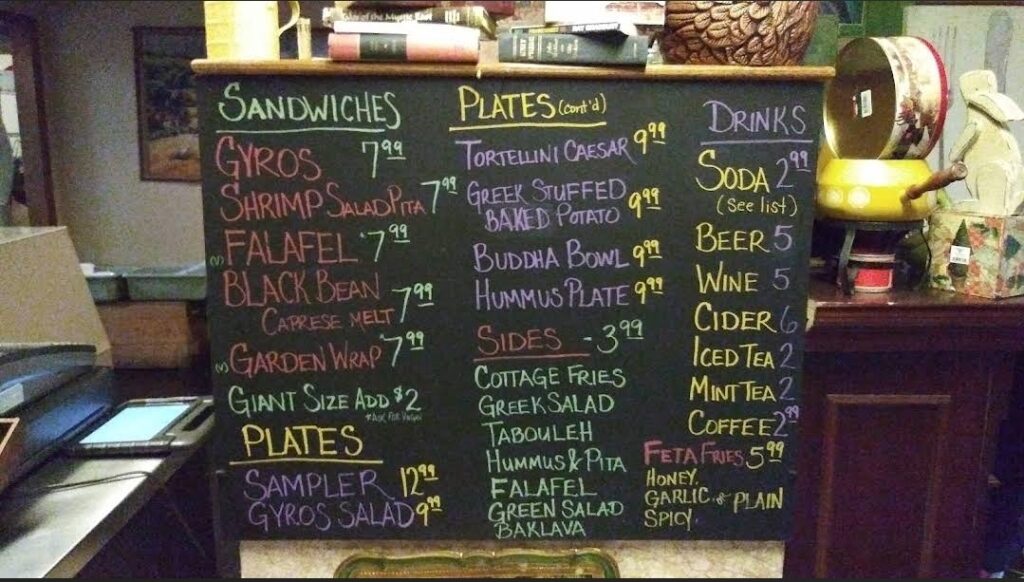 Tales of the Mystic East
SANDWICHES
GYROS 7.99
SHRIMP SALAD PITA 7.99
(V) FALAFEL 7.99
BLACK BEAN
CAPRESE MELT 7.99
(V) GARDEN WRAP 7.99
GIANT SIZE ADD $2
*ASK FOR VEGAN
PLATES
SAMPLER 12.99
GYROS SALAD 9.99
PLATES (cont'd)
TORTELLINI CAESAR 9.99
GREEK STUFFED
BAKED POTATO 9.99
BUDDHA BOWL 9.99
HUMMUS PLATE 9.99
SIDES - 3.99
COTTAGE FRIES
GREEK SALAD
TABOULEH
HUMMUS & PITA
FALAFEL
GREEN SALAD
BAKLAVA
DRINKS
SODA 2.99
(See list)
BEER 5
WINE 5
CIDER 6
ICED TEA 2
MINT TEA 2
COFFEE 2.99
FETA FRIES 5.99
HONEY,
GARLIC, & PLAIN
SPICY,